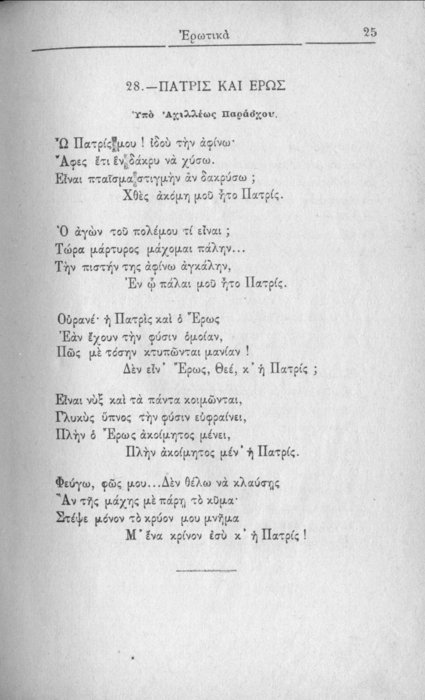 Ἐρωτικὰ 25
28.—ΠΑΤΡΙΣ ΚΑΙ ΕΡΩΣ
Ὑπὸ Ἀχιλλέως Παράσχου.
Ὦ Πατρίς μου ! ἰδοὺ τὴν ἀφίνω·
Ἄφες ἔτι ἓν δάκρυ νὰ χύσω.
Εἶναι πταῖσμα στιγμὴν ἂν δακρύσω ;
Χθὲς ἀκόμη μοῦ ἦτο Πατρίς.
Ὁ ἀγὼν τοῦ πολέμου τί εἶναι ;
Τώρα μάρτυρος μάχομαι πάλην...
Τὴν πιστήν της ἀφίνω ἀγκάλην,
Ἐν ᾧ πάλαι μοῦ ἦτο Πατρίς.
Οὐρανέ· ἡ Πατρὶς καὶ ὁ Ἔρως
Ἐὰν ἔχουν τὴν φύσιν ὁμοίαν,
Πῶς μὲ τόσην κτυπῶνται μανίαν !
Δὲν εἶν' Ἔρως, Θεέ, κ' ἡ Πατρίς ;
Εἶναι νὺξ καὶ τὰ πάντα κοιμῶνται,
Γλυκὺς ὕπνος τὴν φύσιν εὐφραίνει,
Πλὴν ὁ Ἔρως ἀκοίμητος μένει,
Πλὴν ἀκοίμητος μέν' ἡ Πατρίς.
Φεύγω, φῶς μου...Δὲν θέλω νὰ κλαύσῃς
Ἂν τῆς μάχης μὲ πάρῃ τὸ κῦμα·
Στέψε μόνον τὸ κρύον μου μνῆμα
Μ' ἕνα κρίνον ἐσὺ κ' ἡ Πατρίς !